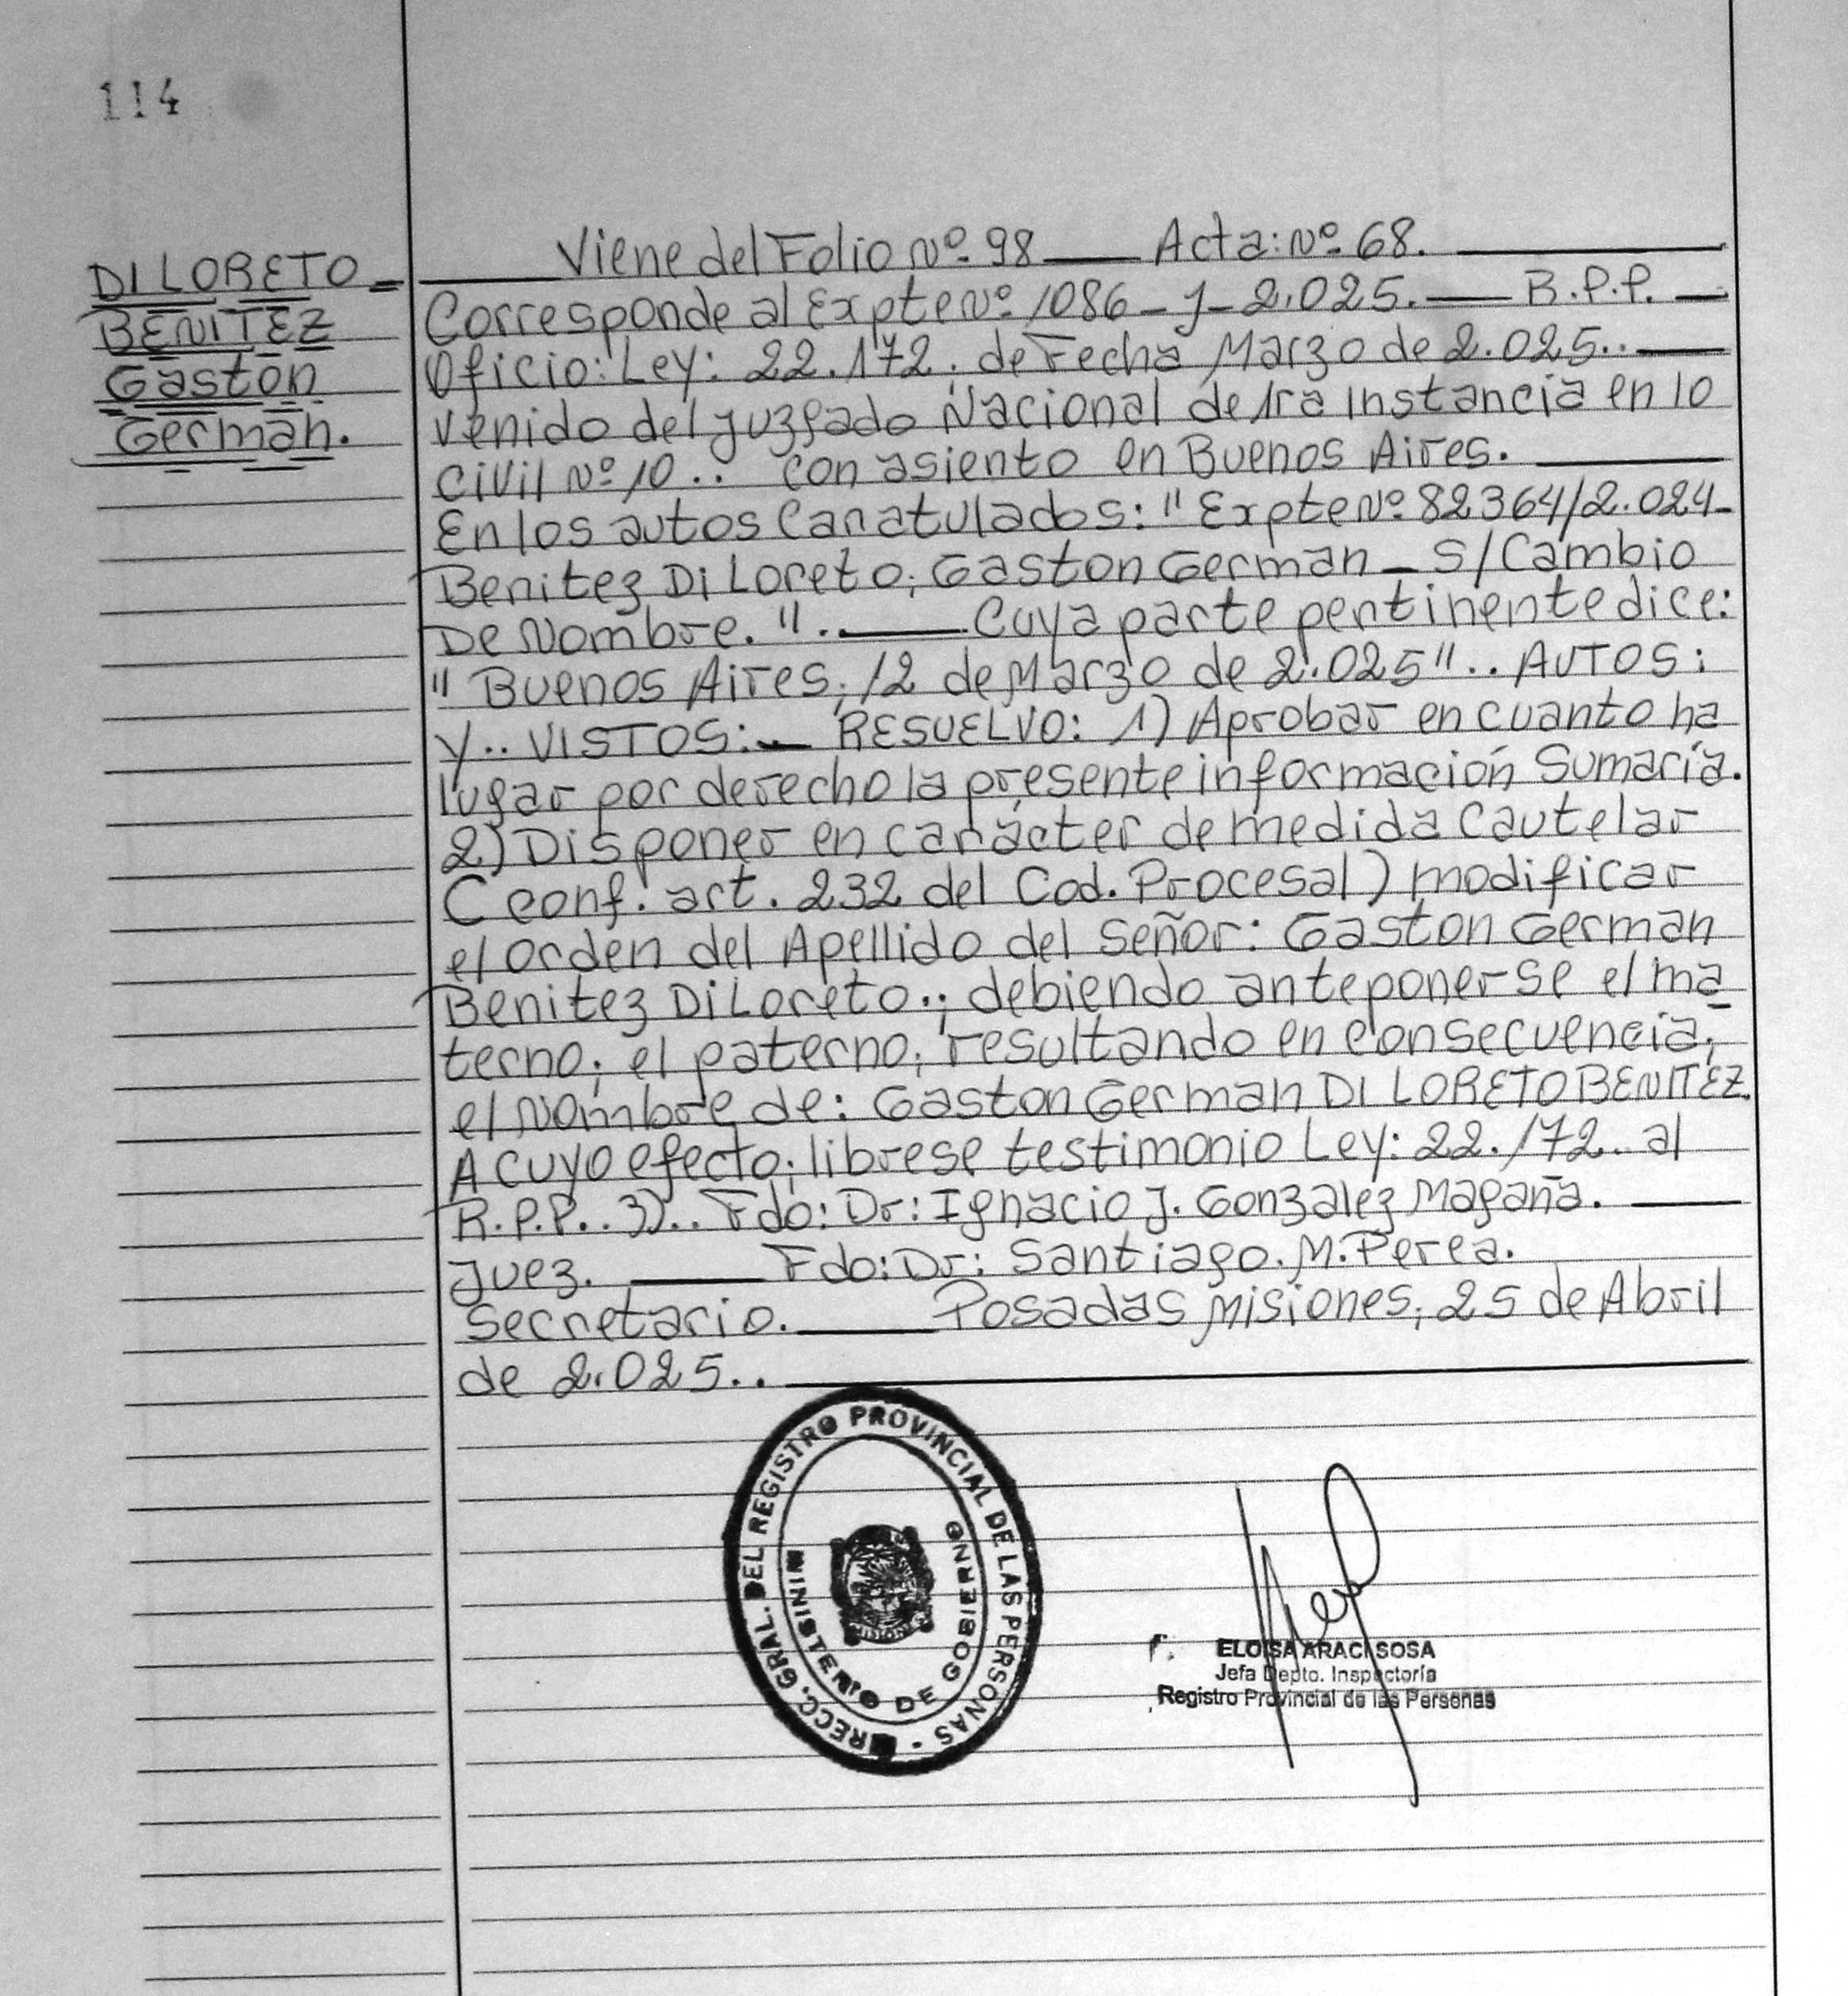 114
DI LORETO
BENITEZ
Gastón
Germán.
Viene del Folio Nº 98 — Acta: Nº 68.
Corresponde al Expte Nº 1086 - J - 2.025. — R.P.P. —
Oficio: Ley: 22.172. de Fecha Marzo de 2.025.. —
venido del Juzgado Nacional de 1ra Instancia en lo
Civil Nº 10.. con asiento en Buenos Aires. —
En los autos Caratulados: "Expte Nº 82364/2.024-
Benitez Di Loreto, Gaston German - S/Cambio
De Nombre.". — Cuya parte pentinente dice:
"Buenos Aires, 12 de Marzo de 2.025".. AUTOS:
y.. VISTOS:. — RESUELVO: 1) Aprobar en cuanto ha
lugar por derecho la presente información Sumaría.
2) Disponer en carácter de medida Cautelar
( conf. art. 232 del Cod. Procesal ) modificar
el orden del Apellido del Señor: Gaston German
Benitez Di Loreto.; debiendo anteponerse el ma
terno; el paterno, resultando en consecuencia,
el Nombre de: Gaston German DI LORETO BENITEZ.
A cuyo efecto, librese testimonio Ley: 22.172.. al
R.P.P.. 3).. Fdo: Dr: Ignacio J. Gonzalez Magaña. —
Juez. — Fdo: Dr: Santiago. M. Perea.
Secretario. — Posadas Misiones, 25 de Abril
de 2.025.. —
DIRECC. GRAL. DEL REGISTRO PROVINCIAL DE LAS PERSONAS -
MINISTERIO DE GOBIERNO
ELOISA ARACI SOSA
Jefa Depto. Inspectoría
Registro Provincial de las Personas